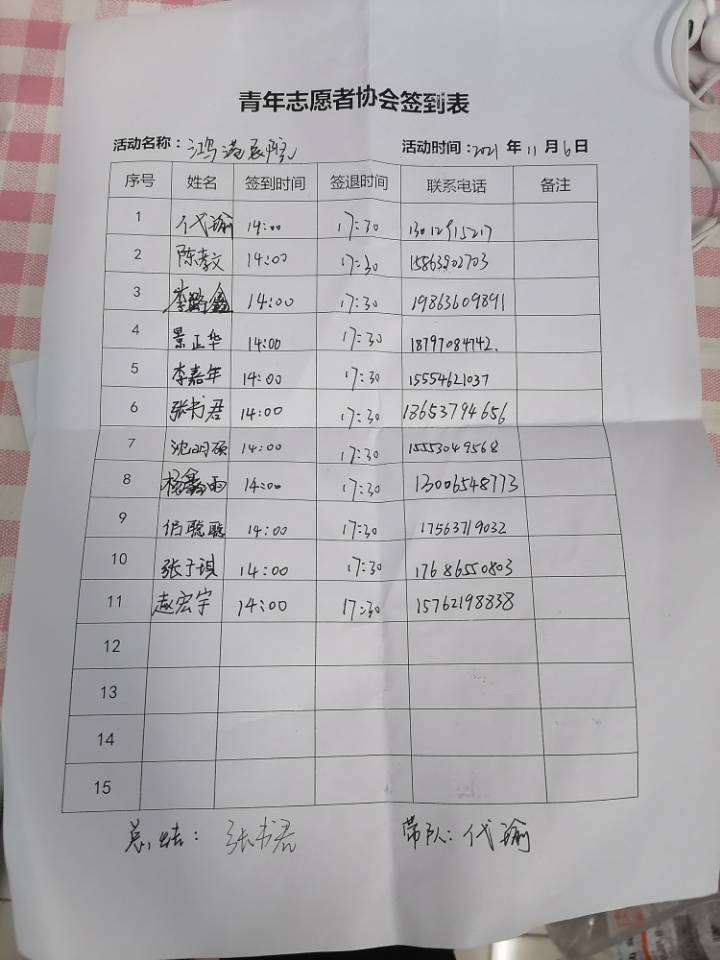 青年志愿者协会签到表
活动名称：鸿 活动时间：2021 年 11 月 6 日
序号 姓名 签到时间 签退时间 联系电话 备注
1 代瑜 14:00 17:30
2 陈孝文 14:00 17:30 15863902703
3 14:00 17:30 19863609891
4 景正华 14:00 17:30 18797084742.
5 李嘉年 14:00 17:30 15554621037
6 张书君 14:00 17:30 18653794656
7 沈明硕 14:00 17:30 15553049568
8 杨鑫雨 14:00 17:30 13006548773
9 聪聪 14:00 17:30 17563719032
10 张子琪 14:00 17:30 17686550803
11 赵宏宇 14:00 17:30 15762198838
12
13
14
15
总结：张书君 带队：代瑜